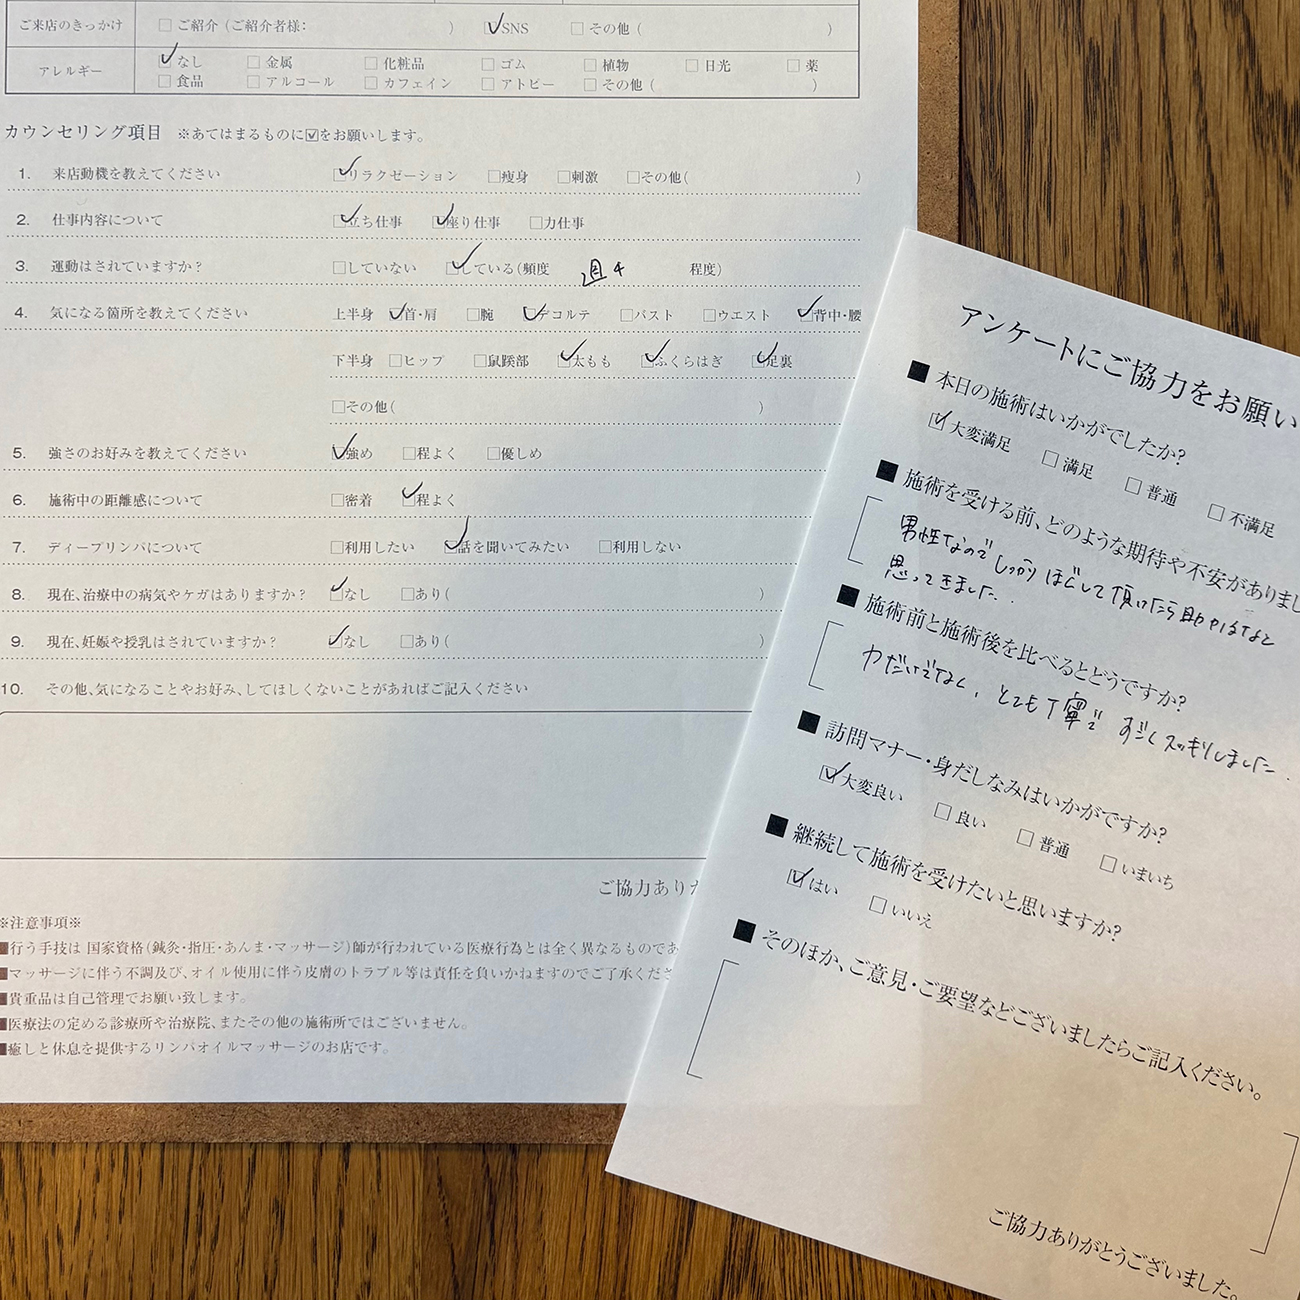 ご来店のきっかけ □ ご紹介 (ご紹介者様: ) ☑SNS □ その他 ( )
アレルギー ☑ なし □ 金属 □ 化粧品 □ ゴム □ 植物 □ 日光 □ 薬
□ 食品 □ アルコール □ カフェイン □ アトピー □ その他 ( )
カウンセリング項目 ※あてはまるものに☑をお願いします。
1. 来店動機を教えてください ☑リラクゼーション □痩身 □刺激 □その他( )
2. 仕事内容について ☑立ち仕事 ☑座り仕事 □力仕事
3. 運動はされていますか? □していない ☑している(頻度 週4 程度)
4. 気になる箇所を教えてください 上半身 ☑首・肩 □腕 ☑デコルテ □バスト □ウエスト ☑背中・腰
下半身 □ヒップ □鼠蹊部 ☑太もも ☑ふくらはぎ ☑足裏
□その他( )
5. 強さのお好みを教えてください ☑強め □程よく □優しめ
6. 施術中の距離感について □密着 ☑程よく
7. ディープリンパについて □利用したい ☑話を聞いてみたい □利用しない
8. 現在、治療中の病気やケガはありますか? ☑なし □あり( )
9. 現在、妊娠や授乳はされていますか? ☑なし □あり( )
10. その他、気になることやお好み、してほしくないことがあればご記入ください
ご協力ありが
※注意事項※
■行う手技は 国家資格(鍼灸・指圧・あんま・マッサージ)師が行われている医療行為とは全く異なるものであ
■マッサージに伴う不調及び、オイル使用に伴う皮膚のトラブル等は責任を負いかねますのでご了承くださ
■貴重品は自己管理でお願い致します。
■医療法の定める診療所や治療院、またその他の施術所ではございません。
■癒しと休息を提供するリンパオイルマッサージのお店です。
アンケートにご協力をお願い
■ 本日の施術はいかがでしたか?
☑大変満足 □ 満足 □ 普通 □ 不満足
■ 施術を受ける前、どのような期待や不安がありまし
男性なので しっかり ほぐして 頂けたら助かるなと
思ってきました.
■ 施術前と施術後を比べるとどうですか?
力だけでなく、とても丁寧で すごくスッキリしました.
■ 訪問マナー・身だしなみはいかがですか?
☑大変良い □ 良い □ 普通 □ いまいち
■ 継続して施術を受けたいと思いますか?
☑はい □ いいえ
■ そのほか、ご意見・ご要望などございましたらご記入ください。
ご協力ありがとうございました。